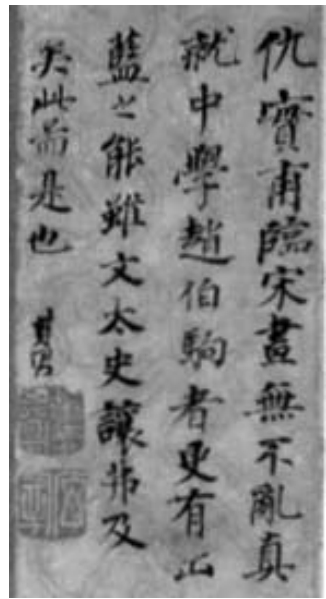 仇實甫臨宋畫無不亂真
就中學趙伯駒者更有出
藍之能雖文太史讓弗及
矣此前是也
其昌